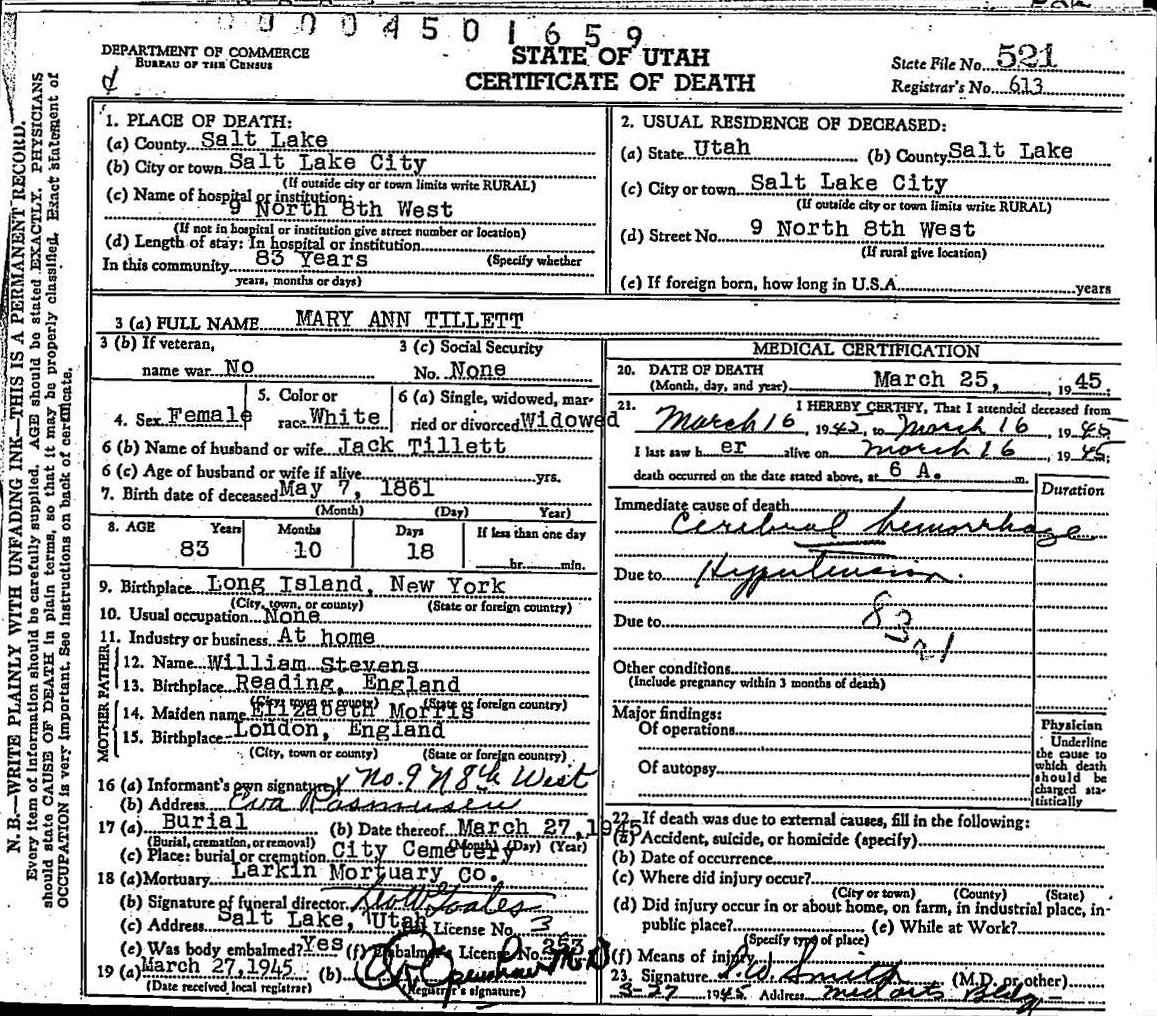 00004501659
DEPARTMENT OF COMMERCE
BUREAU OF THE CENSUS
STATE OF UTAH
CERTIFICATE OF DEATH
State File No. 521
Registrar's No. 613
N. B.—WRITE PLAINLY WITH UNFADING INK—THIS IS A PERMANENT RECORD.
Every item of information should be carefully supplied. AGE should be stated EXACTLY. PHYSICIANS
should state CAUSE OF DEATH in plain terms, so that it may be properly classified. Exact statement of
OCCUPATION is very important. See instructions on back of certificate.
1. PLACE OF DEATH:
(a) County Salt Lake
(b) City or town Salt Lake City
(If outside city or town limits write RURAL)
(c) Name of hospital or institution:
9 North 8th West
(If not in hospital or institution give street number or location)
(d) Length of stay: In hospital or institution
In this community 83 Years (Specify whether
years, months or days)
2. USUAL RESIDENCE OF DECEASED:
(a) State Utah (b) County Salt Lake
(c) City or town Salt Lake City
(If outside city or town limits write RURAL)
(d) Street No. 9 North 8th West
(If rural give location)
(e) If foreign born, how long in U.S.A. years
3 (a) FULL NAME MARY ANN TILLETT
3 (b) If veteran,
name war No
3 (c) Social Security
No. None
4. Sex Female
5. Color or
race White
6 (a) Single, widowed, mar-
ried or divorced Widowed
6 (b) Name of husband or wife Jack Tillett
6 (c) Age of husband or wife if alive yrs.
7. Birth date of deceased May 7, 1861
(Month) (Day) Year)
8. AGE Years Months Days If less than one day
83 10 18 hr. min.
9. Birthplace Long Island, New York
(City, town, or county) (State or foreign country)
10. Usual occupation None
11. Industry or business At home
FATHER
12. Name William Stevens
13. Birthplace Reading, England
(City, town or county) (State or foreign country)
MOTHER
14. Maiden name Elizabeth Morris
15. Birthplace London, England
(City, town or county) (State or foreign country)
16 (a) Informant's own signature x No. 9 N 8th West
(b) Address Eva Rasmussen
17 (a) Burial (b) Date thereof March 27, 1945
(Burial, cremation, or removal) (Month) (Day) (Year)
(c) Place: burial or cremation City Cemetery
18 (a) Mortuary Larkin Mortuary Co.
(b) Signature of funeral director
(c) Address Salt Lake, Utah License No. 3
(e) Was body embalmed? Yes (f) Embalmer License No. 253
19 (a) March 27, 1945 (b) M.D
(Date received local registrar) (Registrar's signature)
MEDICAL CERTIFICATION
20. DATE OF DEATH
(Month, day, and year) March 25, 1945.
21. I HEREBY CERTIFY, That I attended deceased from
March 16, 1942, to March 16, 1945
I last saw h er alive on March 16, 1945;
death occurred on the date stated above, at 6 A. m.
Duration
Immediate cause of death
Cerebral hemorrhage
Due to Hypertension.
Due to 83a1
Other conditions
(Include pregnancy within 3 months of death)
Major findings:
Of operations
Of autopsy
Physician
Underline
the cause to
which death
should be
charged sta-
tistically
22. If death was due to external causes, fill in the following:
(a) Accident, suicide, or homicide (specify)
(b) Date of occurrence
(c) Where did injury occur?
(City or town) (County) (State)
(d) Did injury occur in or about home, on farm, in industrial place, in-
public place? (e) While at Work?
(Specify type of place)
(f) Means of injury
23. Signature L.W. Smith (M.D. or other)
3-27 1945 Address Med arts Bldg